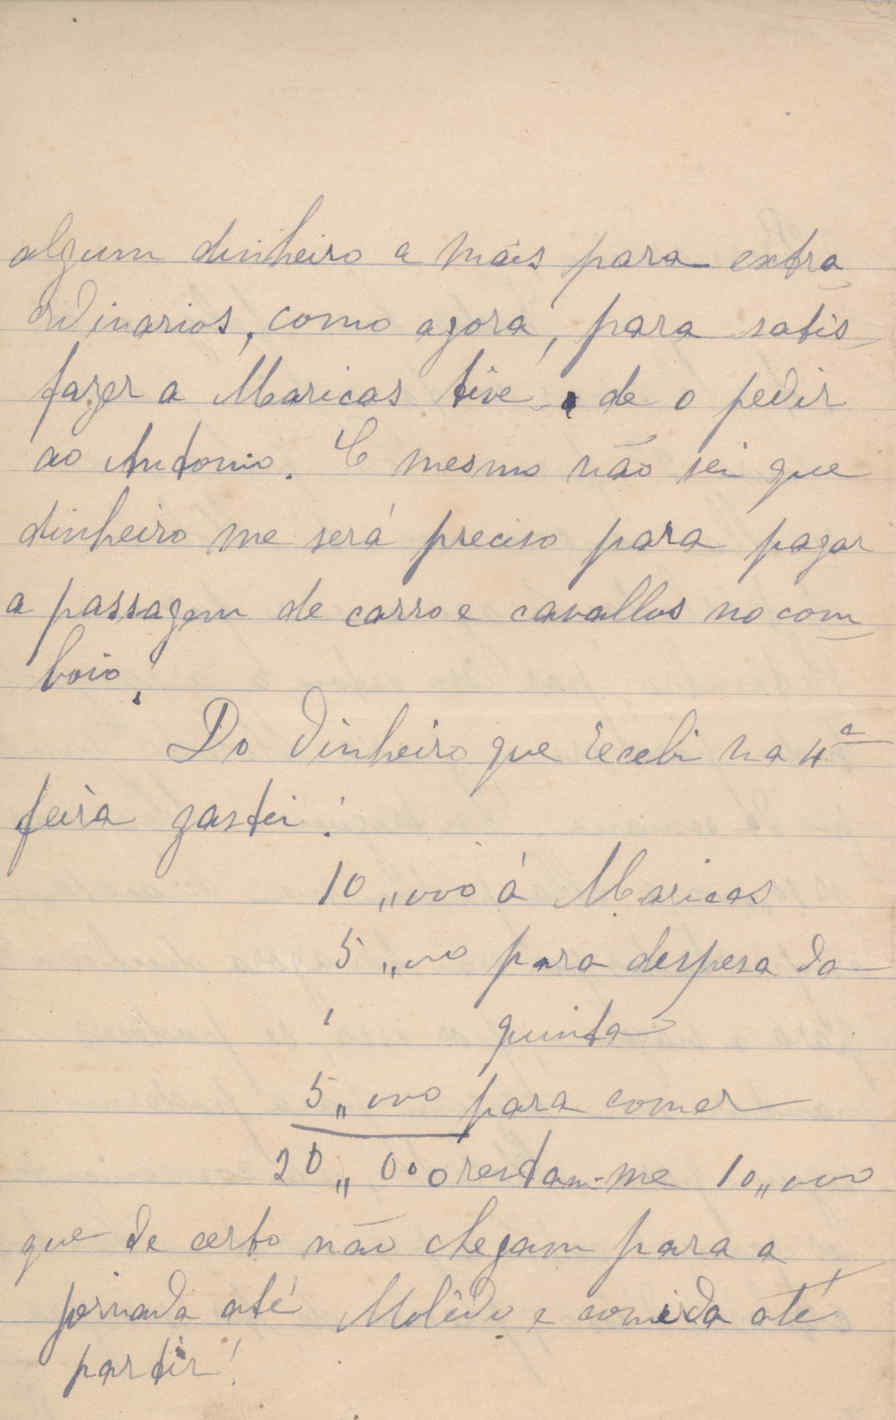 algum dinheiro a mais para extra
ordinarios, como agora, para satis
fazer a Maricas tive de o pedir
ao Antonio. E mesmo não sei que
dinheiro me será preciso para pagar
a passagem de carro e cavallos no com
boio.
Do dinheiro que recebi na 4ª
feira gastei:
10,,000 á Maricas
5,,000 para despesa da
quinta
5,,000 para comer
20,,000 restam-me 10,,000
que de certo não chegam para a
jornada até Molêdo e comida até
partir!